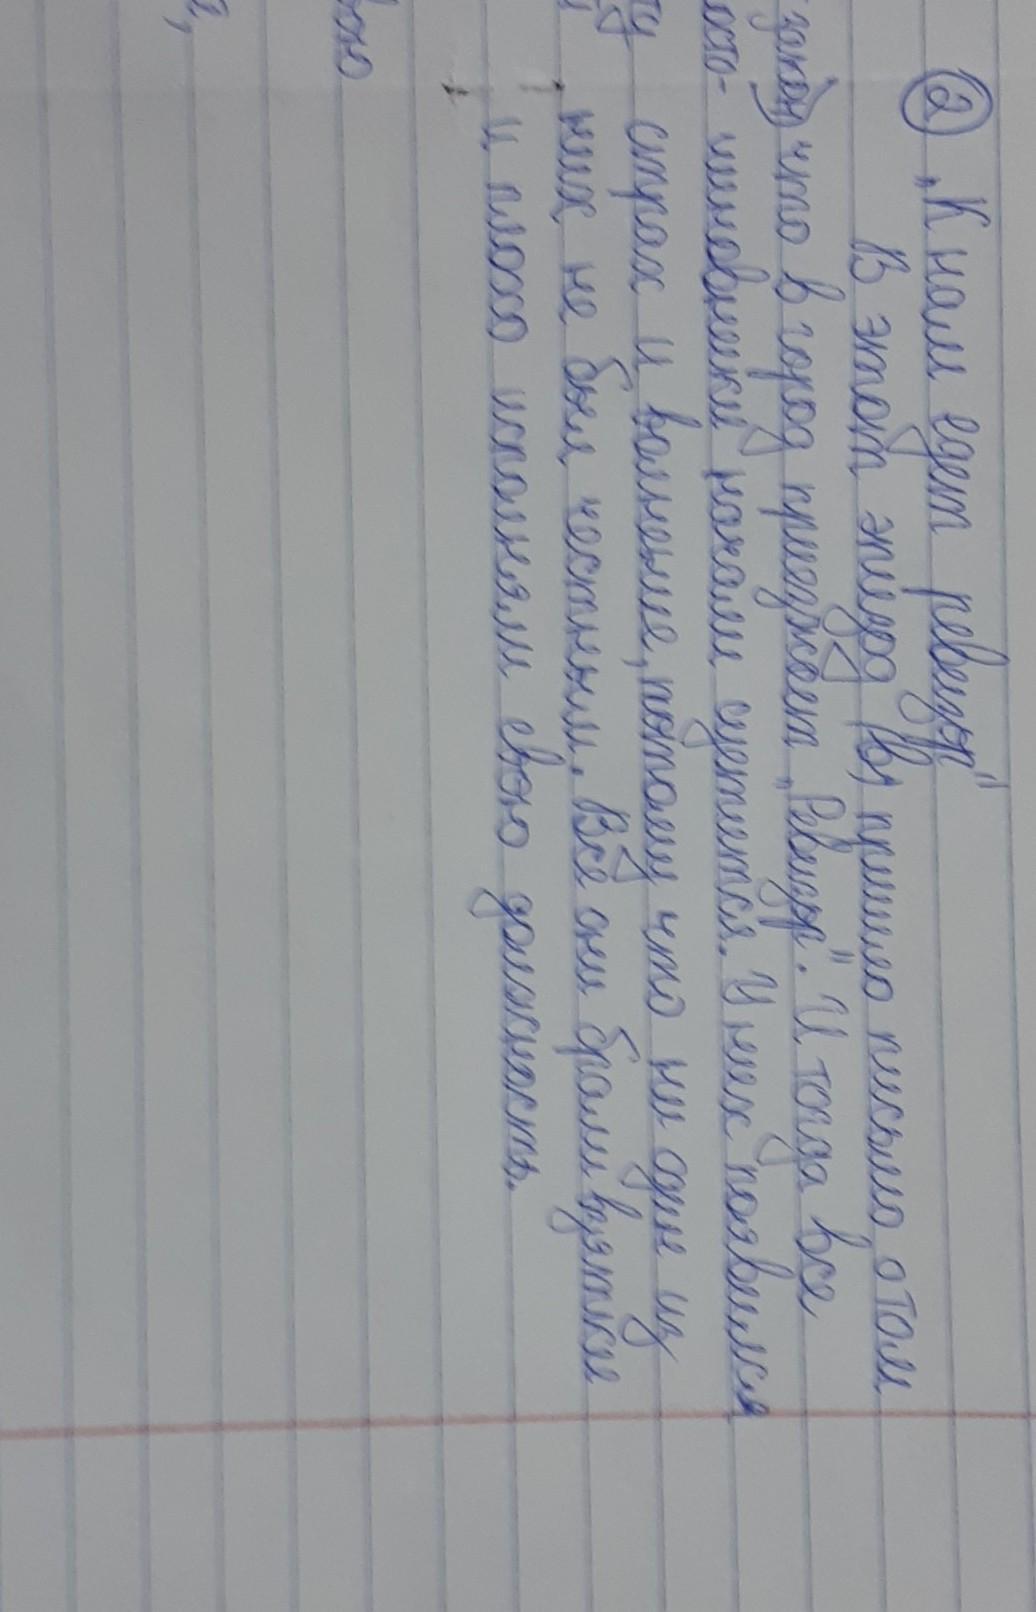 ② „К нам едет ревизор"
В этот эпизод (в) пришло письмо, о том
что в город приезжает „Ревизор". И тогда все
чиновники начали суетится. У них появился
страх и волнение, потому что ни один из
них не был честным. Все они брали взятки
и плохо исполняли свою должность.